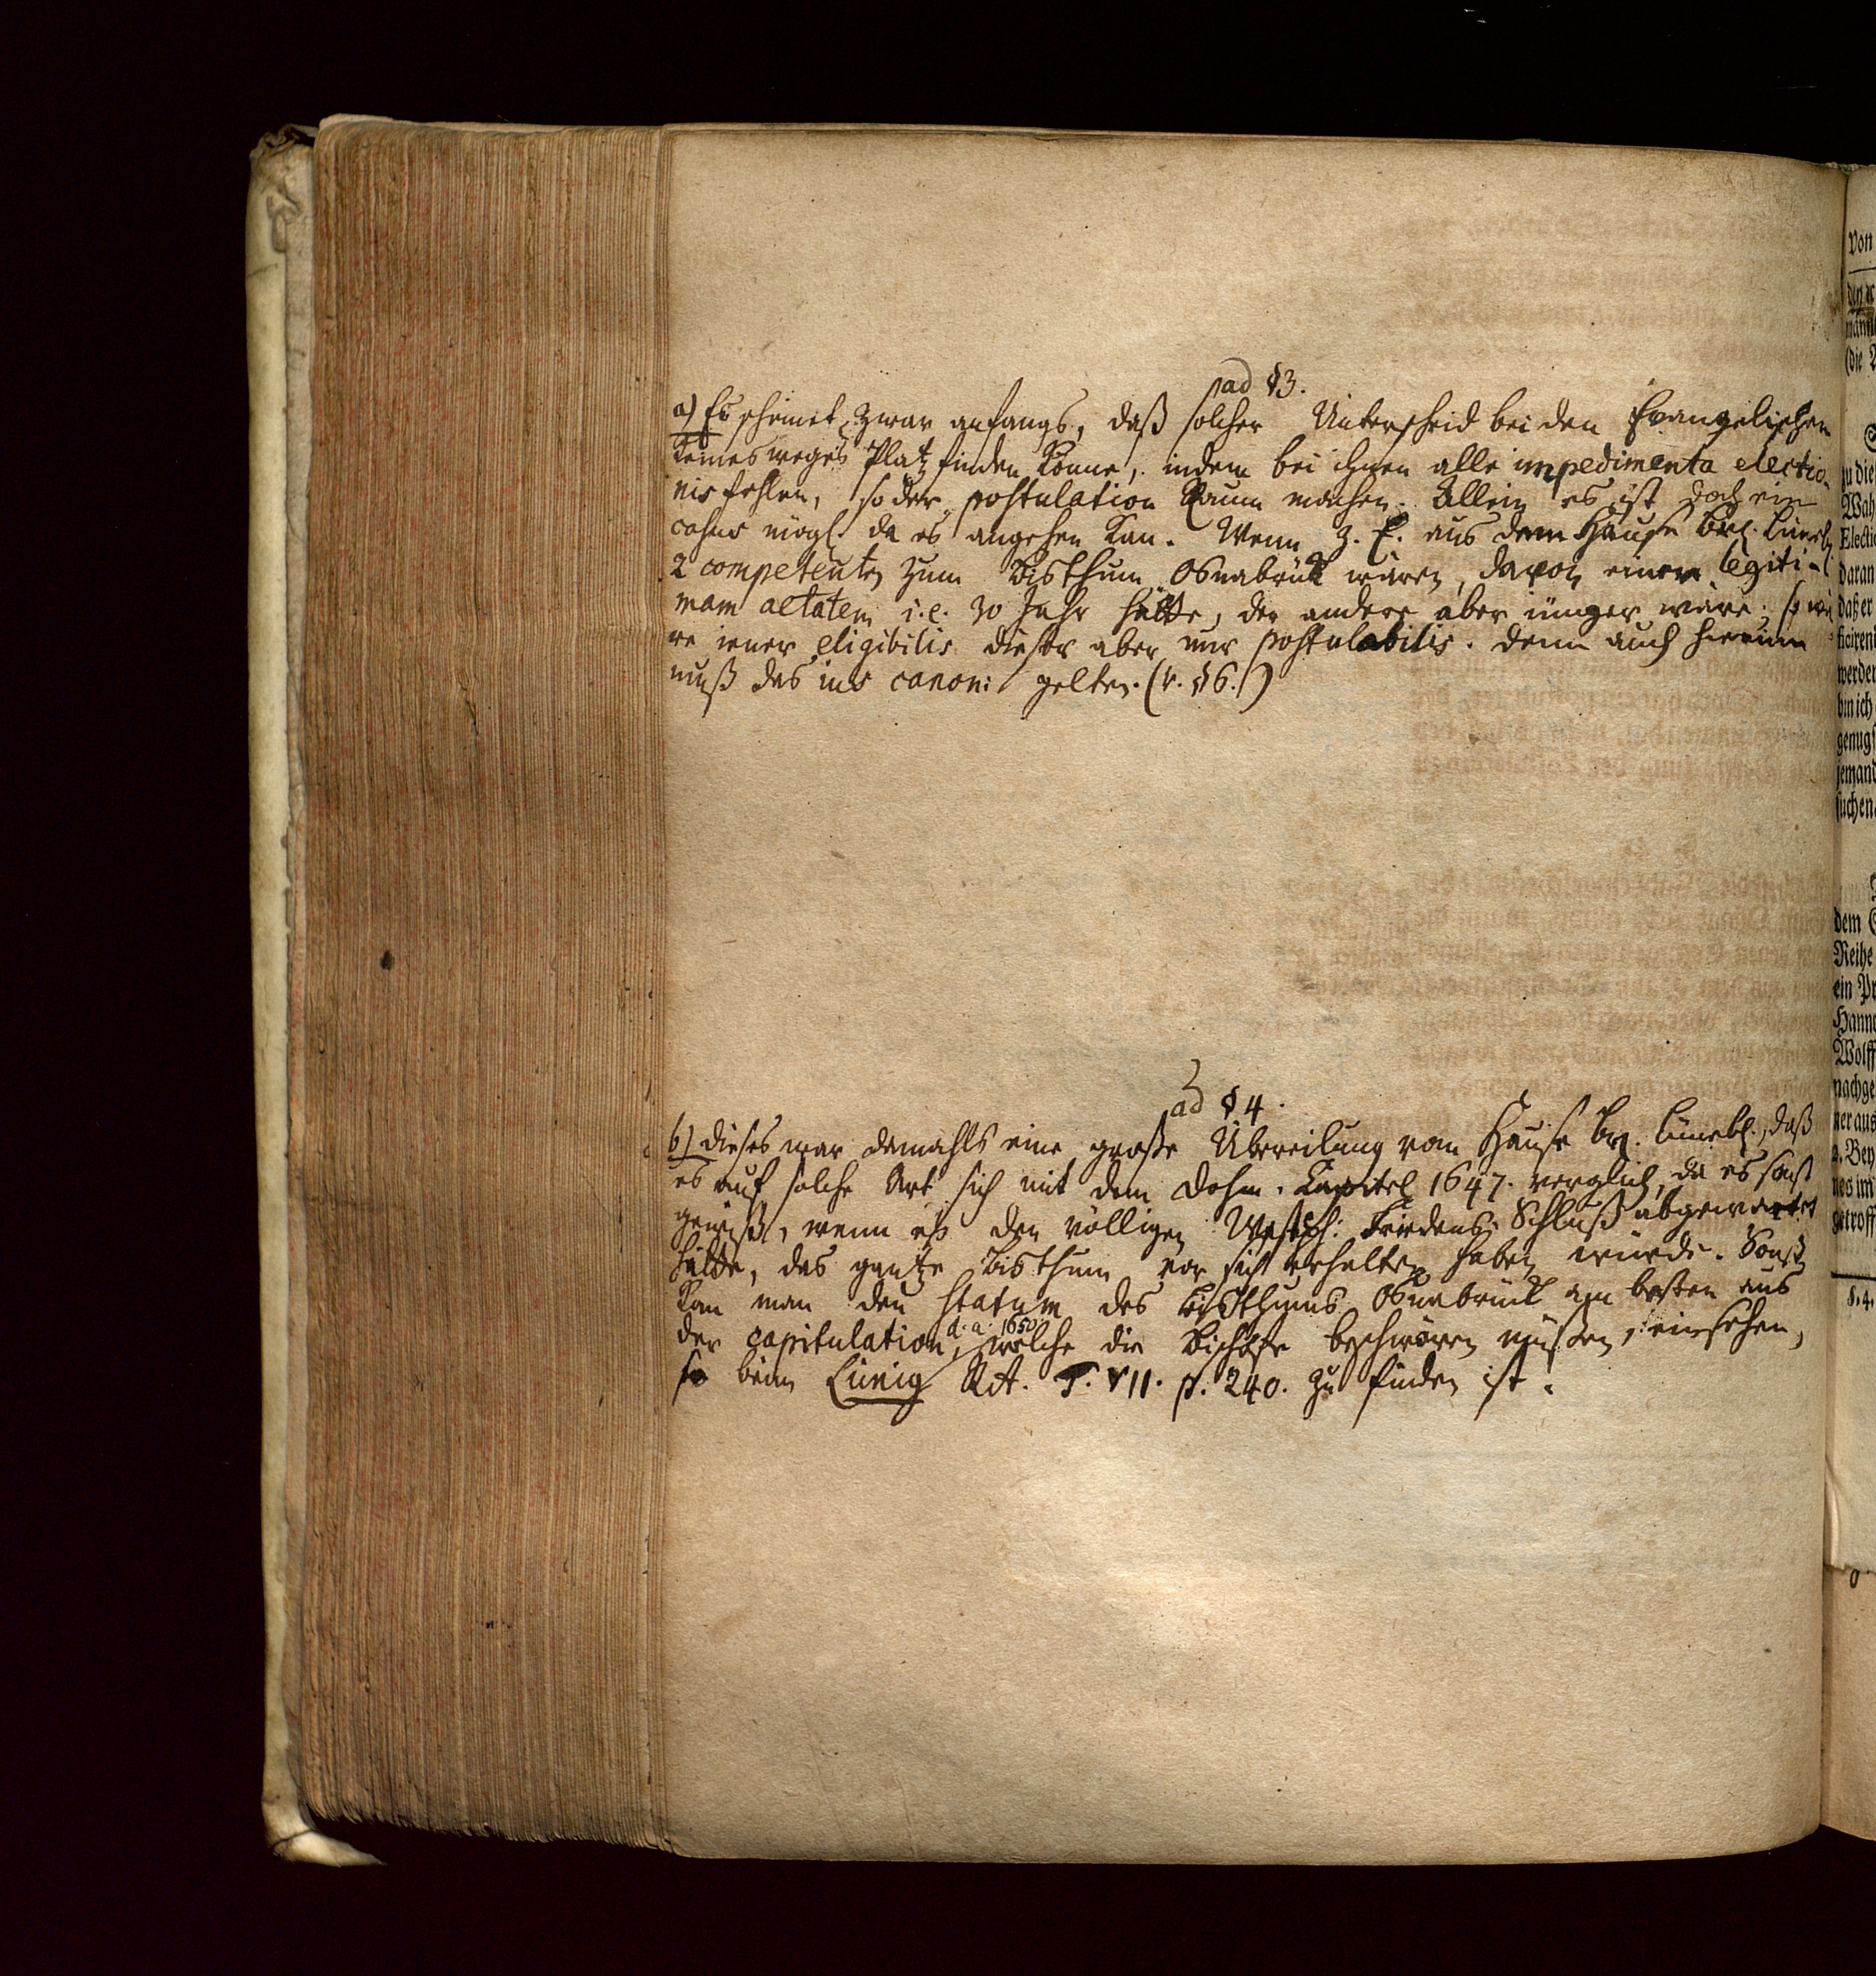 ad §3.
a) Es scheinet zwar anfangs, daß solcher Unterscheid bei den Evangelischen
keines weges Platz finden könne, indem bei ihnen alle impedimenta electio-
nis fehlen, so der postulation Raum machen. Allein es ist doch ein
casus mögl. da es angehen kan. Wenn z. E. aus dem Hause Br. Lüneb.
2 competenten zum Bisthum Osnabrück wären, davon einer legiti-
mam aetatem i.e. 30 Jahr hätte, der andere aber iünger wäre; so wä
re iener eligibilis dieser aber nur postulabilis. denn auch hierinn
muß das ius canon: gelten. (v. §6.)
ad §4.
b) dieses war damahls eine große Übereilung vom Hause Br. Lünebl., daß
es auf solche Art sich mit dem Dohm-Kapitel 1647. verglich, da es sonst
gewiß, wenn es den völligen Westph: Friedens-Schluß abgewartet
hätte, das gantze Bisthum vor sich erhalten haben würde. Sonst
kan man den statum des Bisthums Osnabrück am besten aus
der capitulation d. a. 1650, welche die Bischöfe beschwören müßen, einsehen,
so beim Lünig RA. T. VII. p. 240. zu finden ist.
Von
(die
zu die
Wah
Electi
daran
daß er
ficiren
werden
bin ich
genugs
jemand
suchen
dem
Reihe
ein Pr
Hanno
Wolff
nachge
ner aus
nes im
getroff
§. 4.